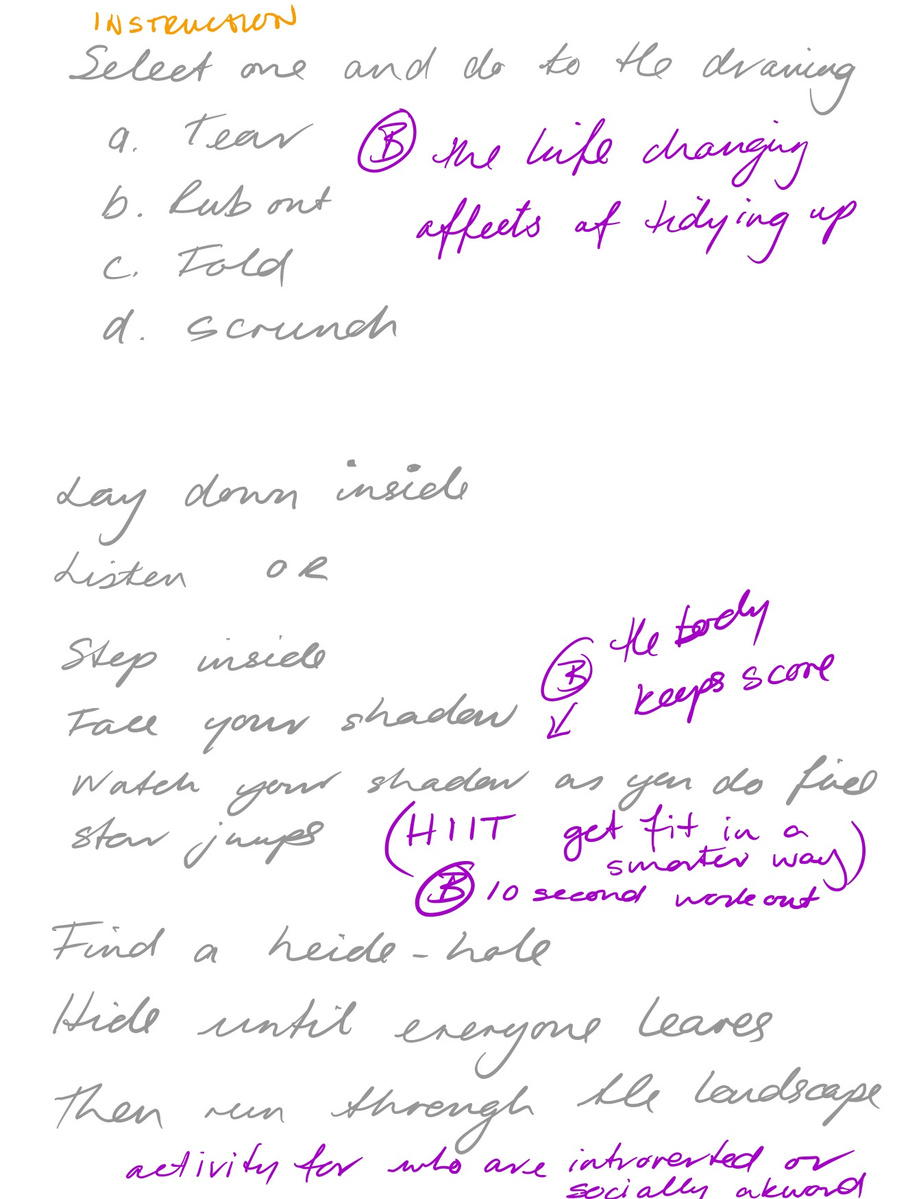 INSTRUCTION
Select one and do to the drawing
a. Tear
B the life changing
b. Rub out
affects of tidying up
c. Fold
d. Scrunch
Lay down inside
Listen OR
Step inside
B the body
keeps score
Face your shadow
Watch your shadow as you do five
star jumps (HIIT get fit in a
smarter way)
B 10 second workout
Find a heide-hole
Hide until everyone leaves
Then run through the landscape
activity for who are introverted or
socially akward